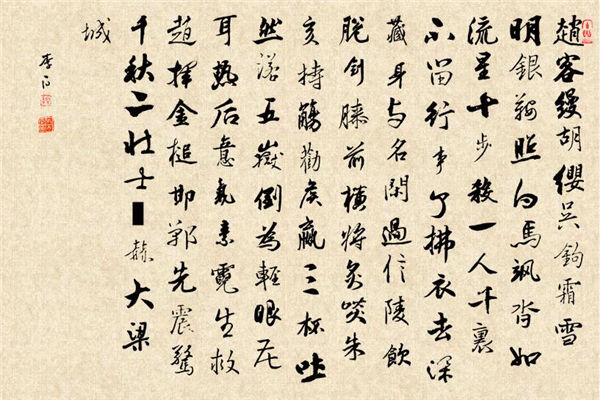 趙客縵胡纓吳鉤霜雪
明銀鞍照白馬颯沓如
流星十步殺一人千裏
不留行事了拂衣去深
藏身与名閑過信陵飲
脫劍膝前橫將炙啖朱
亥持觴勸侯嬴三杯吐
然諾五嶽倒為輕眼花
耳熱后意氣素霓生救
趙揮金槌邯鄲先震驚
千秋二壮士赫大梁
城
李白